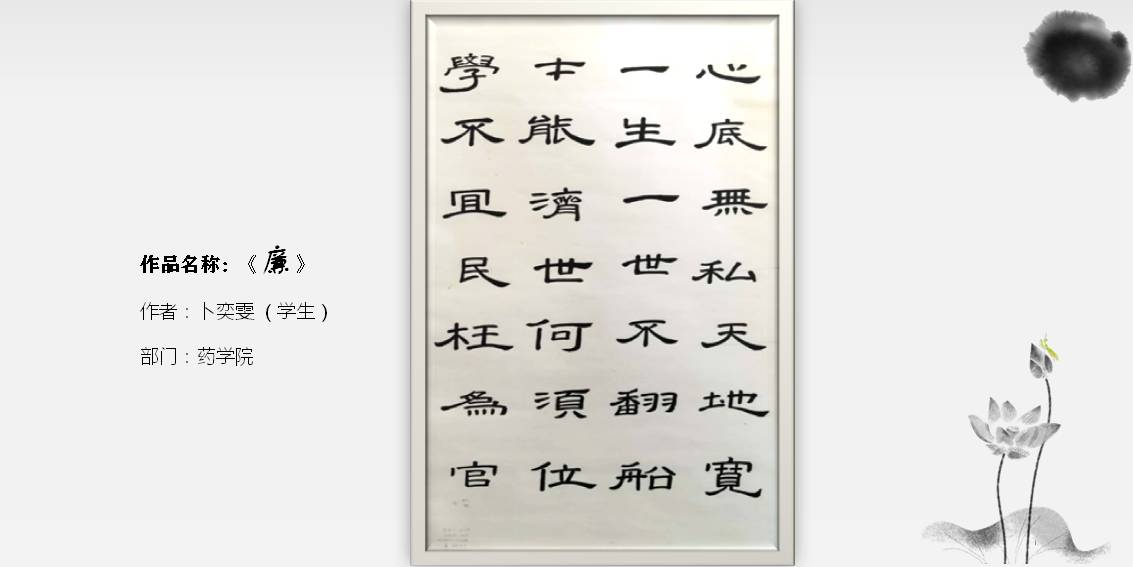 作品名称：《廉》
作者：卜奕雯（学生）
部门：药学院
心底無私天地寬
一生一世不翻船
才能濟世何須位
學不宜民枉為官